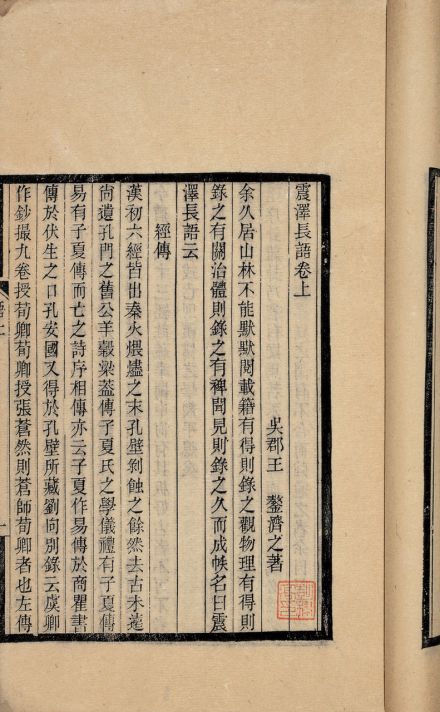 震澤長語卷上
吳郡王 鏊濟之著
余久居山林不能默默閱載籍有得則錄之觀物理有得則
錄之有關治體則錄之有裨聞見則錄之久而成帙名曰震
澤長語云
經傳
漢初六經皆出秦火煨燼之末孔壁剝蝕之餘然去古未遠
尚遺孔門之舊公羊穀梁蓋傳子夏氏之學儀禮有子夏傳
易有子夏傳而亡之詩序相傳亦云子夏作易傳於商瞿書
傳於伏生之口孔安國又得於孔壁所藏劉向別錄云虞卿
作鈔撮九卷授荀卿荀卿授張蒼然則蒼師荀卿者也左傳